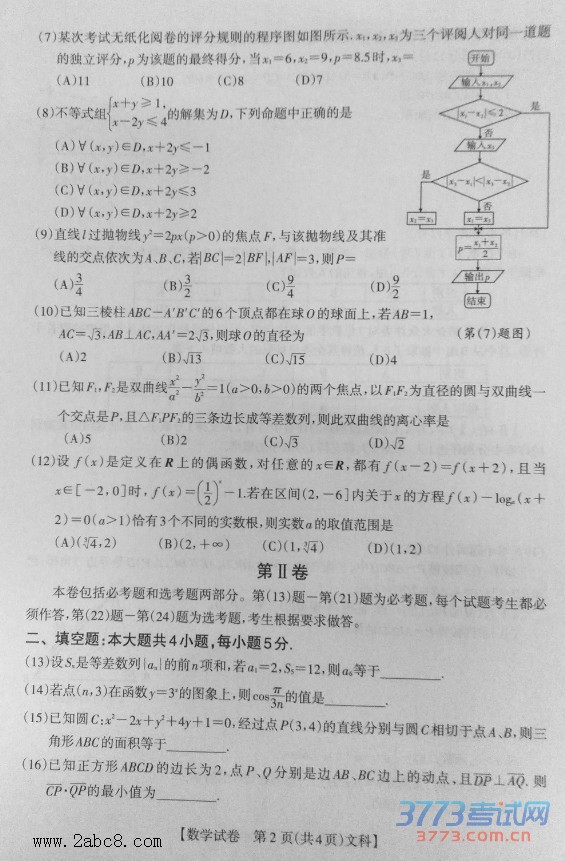 (7)某次考试无纸化阅卷的评分规则的程序图如图所示. x₁, x₂, x₃为三个评阅人对同一道题
的独立评分,p为该题的最终得分,当x₁=6,x₂=9,p=8.5时,x₃=
(A)11 (B)10 (C)8 (D)7
开始
输入x₁,x₂
|x₁-x₂|≤2
是
否
输入x₃
|x₃-x₁|<|x₃-x₂|
是
否
x₂=x₃
x₁=x₃
p=(x₁+x₂)/2
输出p
结束
(第(7)题图)
(8)不等式组{x+y≥1, x-2y≤4的解集为D,下列命题中正确的是
(A)∀(x,y)∈D,x+2y≤-1
(B)∀(x,y)∈D,x+2y≥-2
(C)∀(x,y)∈D,x+2y≤3
(D)∀(x,y)∈D,x+2y≥2
(9)直线l过抛物线y²=2px(p>0)的焦点F,与该抛物线及其准
线的交点依次为A、B、C,若|BC|=2|BF|,|AF|=3,则P=
(A)3/4 (B)3/2 (C)9/4 (D)9/2
(10)已知三棱柱ABC-A′B′C′的6个顶点都在球O的球面上,若AB=1,
AC=√3,AB⊥AC,AA′=2√3,则球O的直径为
(A)2 (B)√13 (C)√15 (D)4
(11)已知F₁,F₂是双曲线x²/a²-y²/b²=1(a>0,b>0)的两个焦点,以F₁F₂为直径的圆与双曲线一
个交点是P,且△F₁PF₂的三条边长成等差数列,则此双曲线的离心率是
(A)5 (B)2 (C)√3 (D)√2
(12)设f(x)是定义在R上的偶函数,对任意的x∈R,都有f(x-2)=f(x+2),且当
x∈[-2,0]时,f(x)=(1/2)ˣ-1.若在区间(2,-6]内关于x的方程f(x)-logₐ(x+
2)=0(a>1)恰有3个不同的实数根,则实数a的取值范围是
(A)(∛4,2) (B)(2,+∞) (C)(1,∛4) (D)(1,2)
第Ⅱ卷
本卷包括必考题和选考题两部分。第(13)题-第(21)题为必考题,每个试题考生都必
须作答,第(22)题-第(24)题为选考题,考生根据要求做答。
二、填空题:本大题共4小题,每小题5分.
(13)设Sₙ是等差数列{aₙ}的前n项和,若a₁=2,S₃=12,则a₆等于________.
(14)若点(n,3)在函数y=3ˣ的图象上,则cos π/3n的值是________.
(15)已知圆C:x²-2x+y²+4y+1=0,经过点P(3,4)的直线分别与圆C相切于点A、B,则三
角形ABC的面积等于________.
(16)已知正方形ABCD的边长为2,点P、Q分别是边AB、BC边上的动点,且DP⊥AQ. 则
CP·QP的最小值为________.
【数学试卷 第2页(共4页)文科】
www.2abc8.com
3773考试网
3773.com.cn